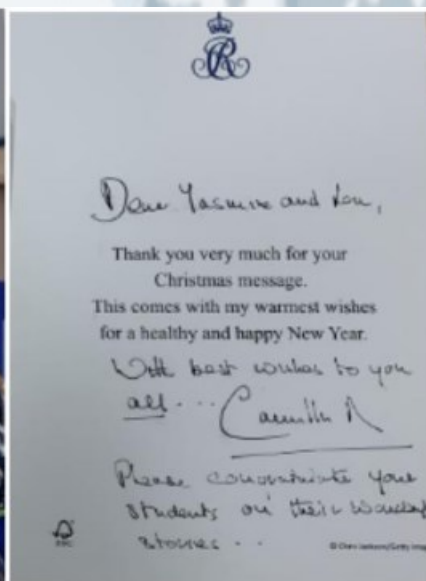 Dear Yasmine and Lou,
Thank you very much for your
Christmas message.
This comes with my warmest wishes
for a healthy and happy New Year.
With best wishes to you
all...
Camilla R
Please congratulate your
students on their wonderful
stories...
FSC
© Chris Jackson/Getty Images